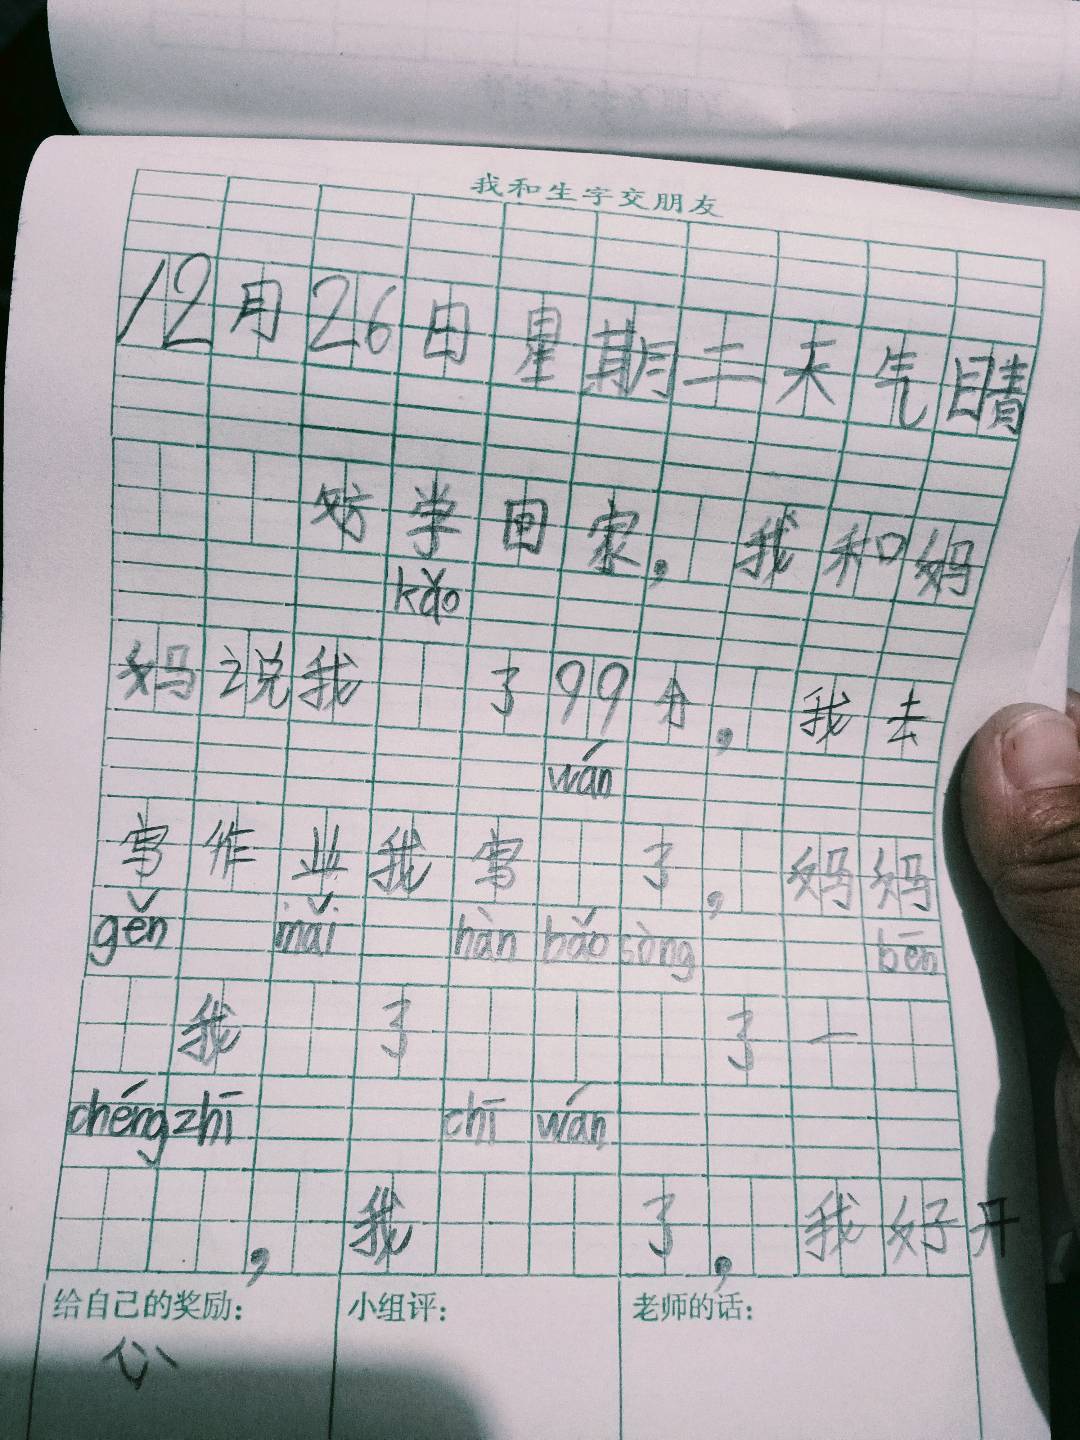 我和生字交朋友
12月26日星期二天气晴
放学回家，我和妈
kǎo
妈说我 了99分，我去
wán
写作业我写 了，妈妈
gěn mǎi hàn bǎo sòng bēn
我 了 了一
chéng zhī chī wán
，我 了，我好开
给自己的奖励： 小组评： 老师的话：
心